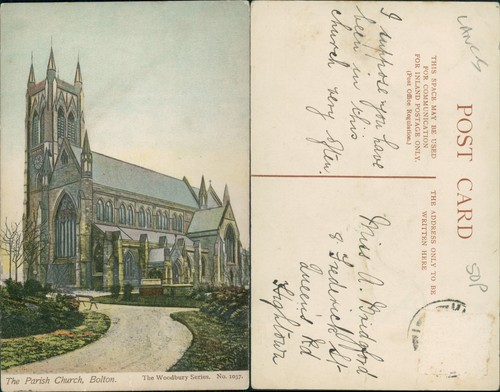 The Parish Church, Bolton.
The Woodbury Series. No. 1037.
I suppose you have
been in this
church very often.
THIS SPACE MAY BE USED
FOR COMMUNICATION
FOR INLAND POSTAGE ONLY.
(Post Office Regulation.)
POST CARD
THE ADDRESS ONLY TO BE
WRITTEN HERE
Miss A
8 Frederick St
Queen's Rd
Lancs
SDP